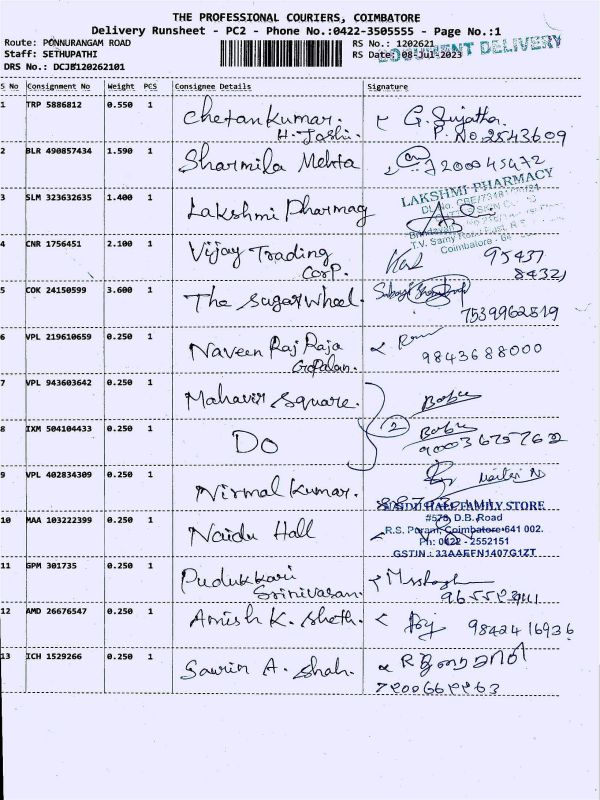 THE PROFESSIONAL COURIERS, COIMBATORE
Delivery Runsheet - PC2 - Phone No.:0422-3505555 - Page No.:1
Route: PONNURANGAM ROAD
RS No.: 1202621
DOCUMENT DELIVERY
Staff: SETHUPATHI
RS Date: 08-Jul-2023
DRS No.: DCJB120262101
S No Consignment No Weight PCS Consignee Details Signature
1 TRP 5886812 0.550 1 Chetankumar. G. Sujatha
H. Joshi. P. No 2543609
2 BLR 490857434 1.590 1 Sharmila Mehta 7200045472
3 SLM 323632635 1.400 1 Lakshmi Pharmacy
LAKSHMI PHARMACY
T.V. Samy Road East, R.S.
Coimbatore
4 CNR 1756451 2.100 1 Vijay Trading 95437
Corp. 84321
5 COK 24150599 3.600 1 The Sugarwheel.
7539962819
6 VPL 219610659 0.250 1 Naveen Raj Raja
Gopalan. 9843688000
7 VPL 943603642 0.250 1 Mahavir Square. Babu
2
8 IXM 504104433 0.250 1 DO Babu
9 VPL 402834309 0.250 1 Nirmal Kumar.
NAIDU HALL FAMILY STORE
10 MAA 103222399 0.250 1 Naidu Hall
#578, D.B. Road
R.S. Puram, Coimbatore-641 002.
Ph: 0422 - 2552151
GSTIN : 33AAEFN1407G1ZT
11 GPM 301735 0.250 1 Pudukkari
Srinivasan.
12 AMD 26676547 0.250 1 Amish K. Sheth. 9842416936
13 ICH 1529266 0.250 1 Saurin A. Shah.